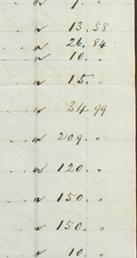 " 13.58
" 26.84
" 10. "
" 15. "
" 34.99
" 209. "
" 120. "
" 150. "
" 150. "
" 10. "